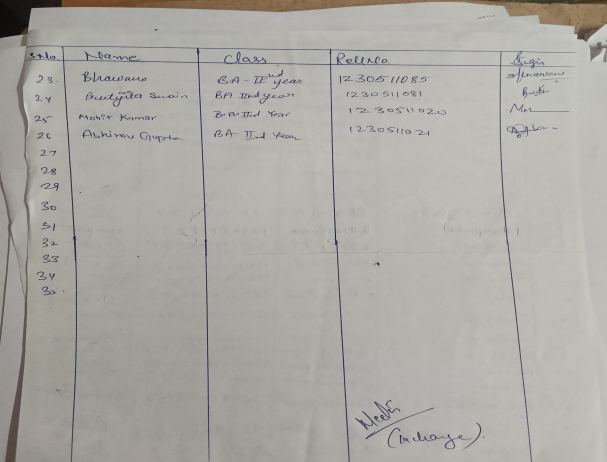 S.No. Name Class Roll No. Sign
23. Bhawana BA-IInd year 1230511085
24 Swain BA IInd year 1230511081
25 Mohit Kumar B.A-IInd Year 1230511020
26 Abhinav Gupta BA IInd Year 1230511021
27
28
29
30
31
32
33
34
35.
(Incharge).